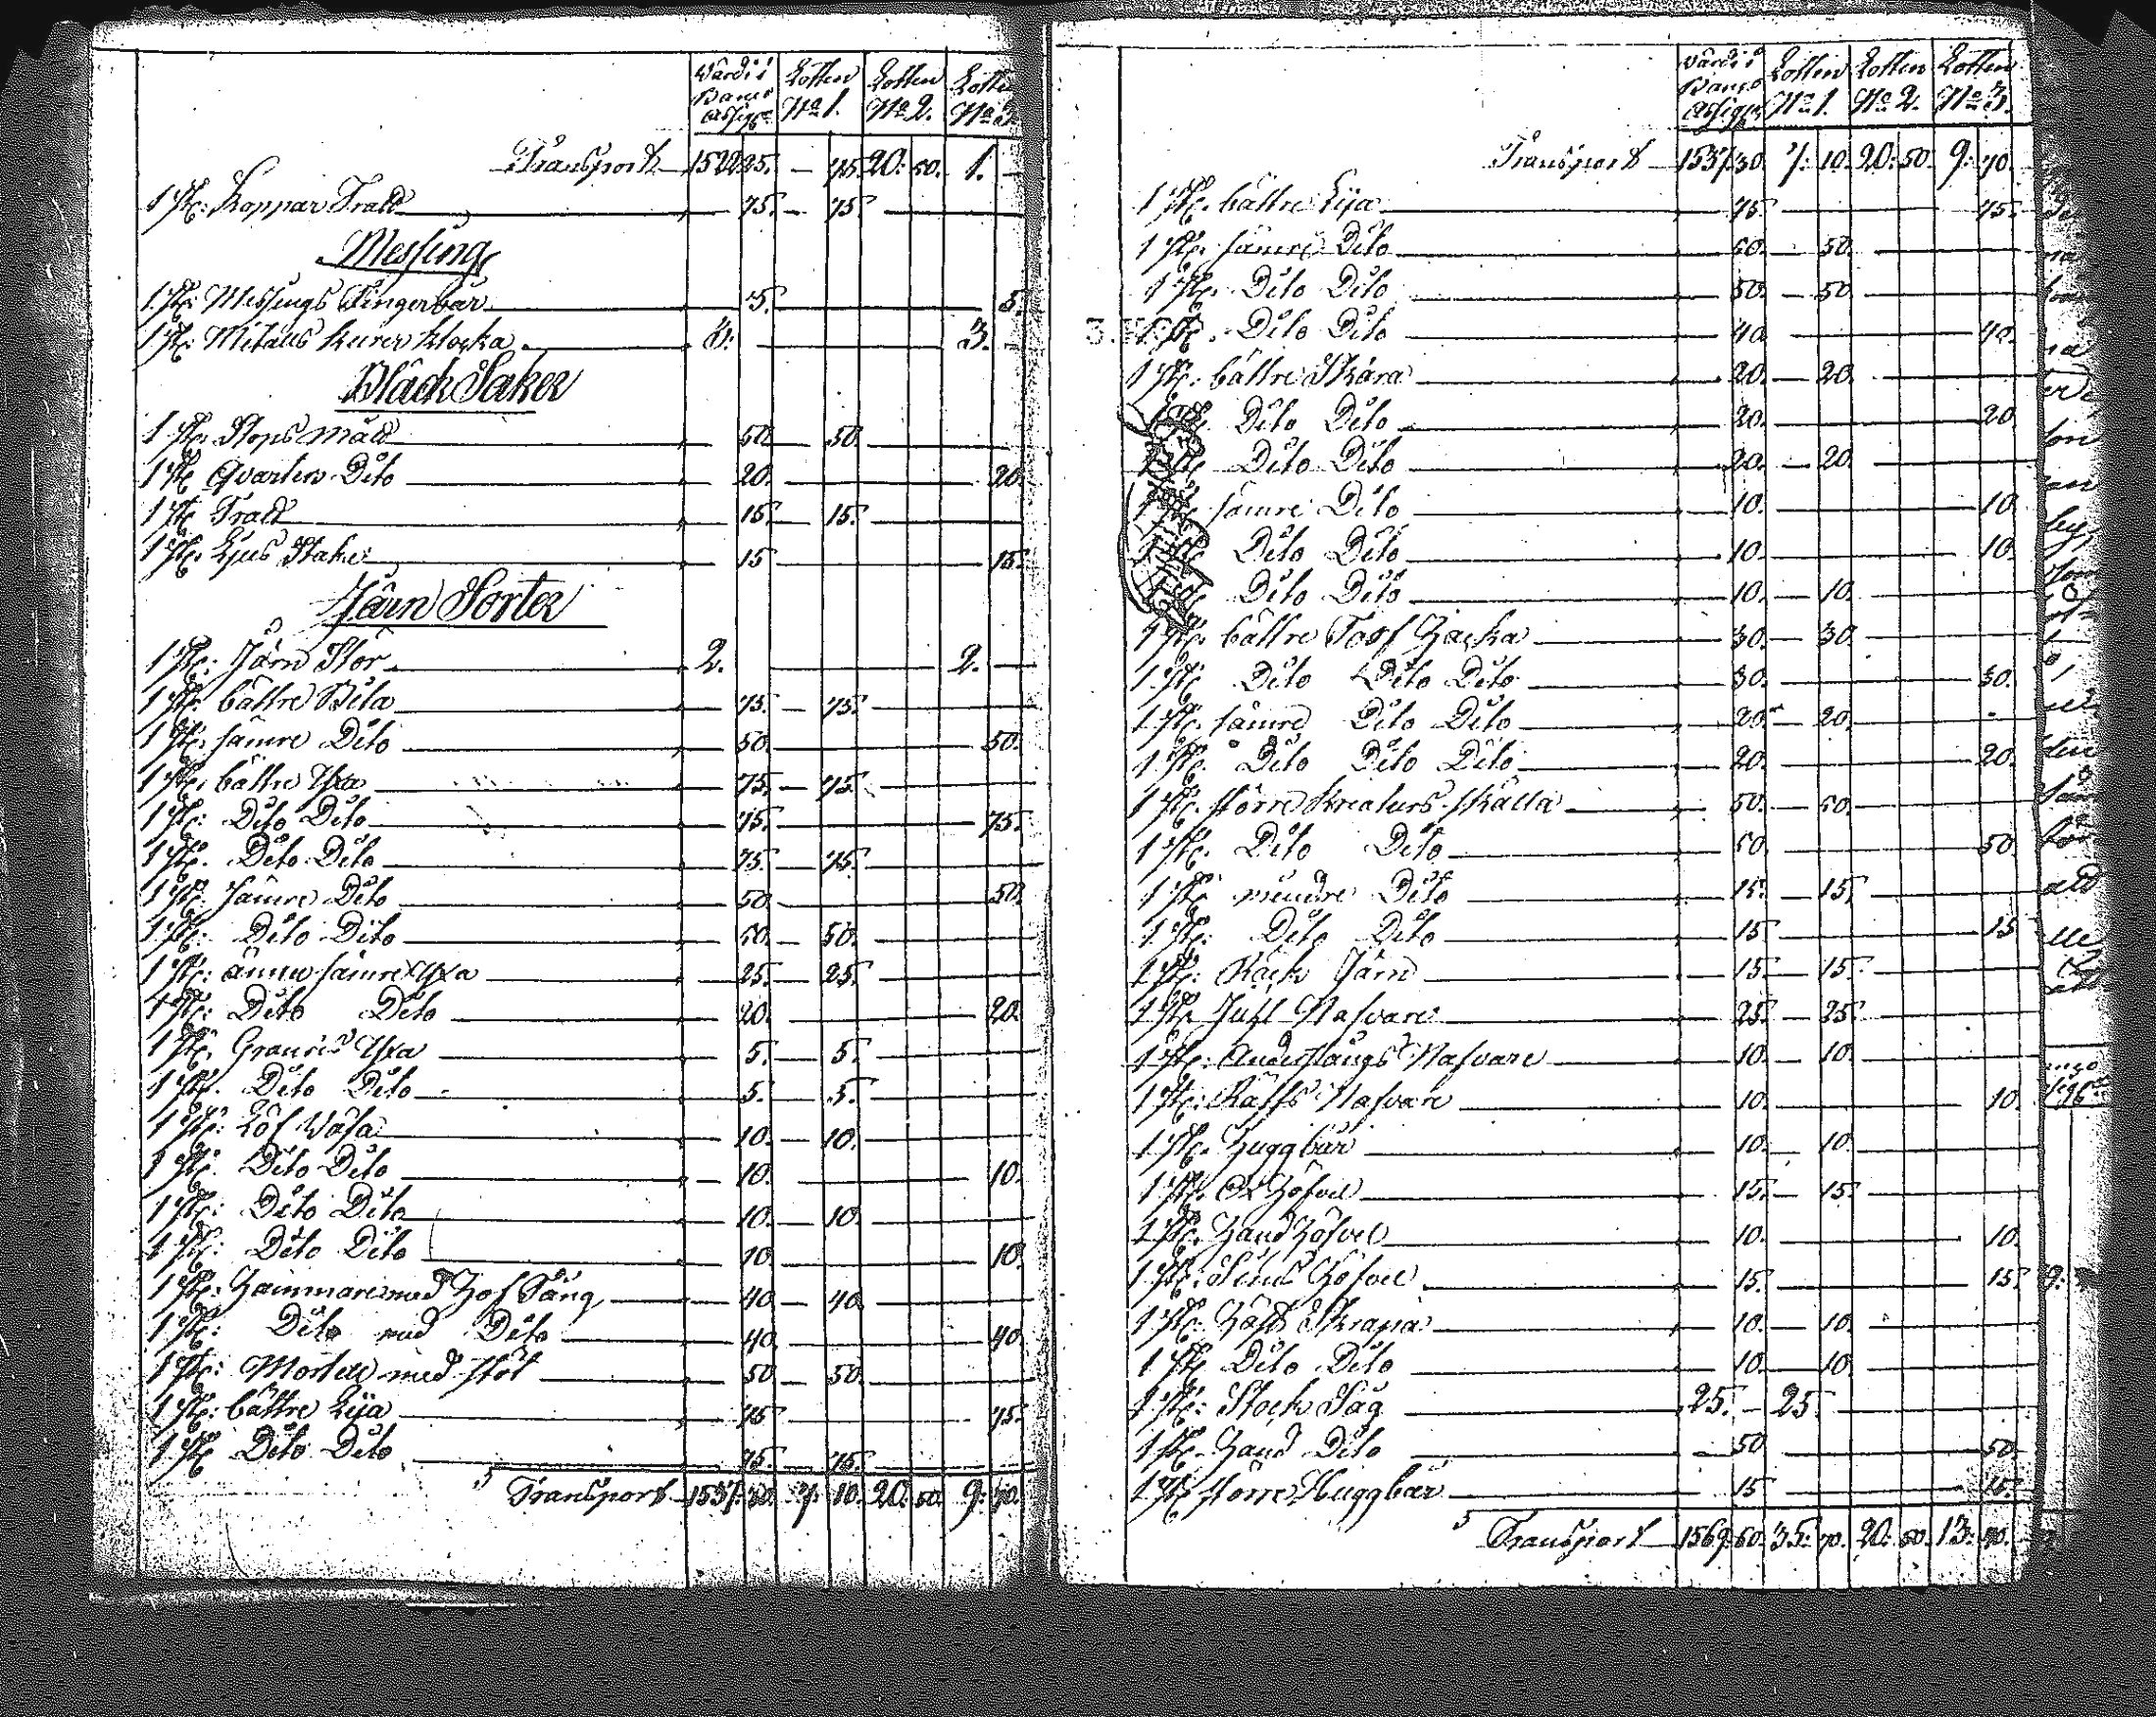 Värdi i Banco Assign: Lotten No 1. Lotten No 2. Lotten No 3.
Transport 1522 25. — 75. 20: 50. 1. —
1 St: Koppar Tratt — 75. — 75.
Messing
1 St: Messings Fingerbår — 5. 5.
1 St: Metalls Kurer Klocka 3: — 3. —
Bläck Saker
1 St. Stops Mått — 50. — 50.
1 St. Qvarters Dito — 20. 20.
1 St. Tratt — 15. — 15.
1 St. Ljus Stake — 15 15.
Järn Sorter
1 St: Järn Stör 2. 2. —
1 St. bättre Bila — 75. — 75.
1 St. sämre Dito — 50. 50.
1 St. bättre Yxa — 75. — 75.
1 St: Dito Dito — 75. 75.
1 St. Dito Dito — 75. — 75.
1 St. sämre Dito — 50. 50.
1 St: Dito Dito — 50. — 50.
1 St: ännu sämre Yxa — 25. — 25.
1 St: Dito Dito — 20. 20.
1 St. Yxa — 5. — 5.
1 St. Dito Dito — 5. — 5.
1 St: Löf — 10. — 10.
1 St. Dito Dito — 10. 10.
1 St: Dito Dito — 10. — 10.
1 St: Dito Dito — 10. 10.
1 St. Hammare med Hof Tång — 40. — 40.
1 St: Dito med Dito — 40. 40.
1 St: Mortell med stöt — 50. — 50.
1 St: bättre Lija — 75 75.
1 St Dito Dito — 75. — 75.
Transport 1537: 30. 7: 10. 20: 50. 9: 70.
Värdi i Banco Assign: Lotten No 1. Lotten No 2. Lotten No 3.
Transport 1537. 30. 7: 10. 20: 50. 9: 70.
1 St. bättre Lija — 75. 75.
1 St. sämre Dito — 50. — 50.
1 St. Dito Dito — 50. — 50.
1 St. Dito Dito — 40. 40.
1 St. bättre Skära — 20. — 20.
1 St. Dito Dito — 20. 20.
1 St. Dito Dito — 20. — 20.
1 St. sämre Dito — 10. 10.
1 St. Dito Dito — 10. 10.
1 St. Dito Dito — 10. — 10.
1 St. bättre Torf Hacka — 30. — 30.
1 St. Dito Dito Dito — 30. 30.
1 St. sämre Dito Dito — 20. — 20.
1 St. Dito Dito Dito — 20. 20.
1 St. större Kreaturs skälla — 50. — 50.
1 St. Dito Dito — 50. 50.
1 St. mindre Dito — 15. — 15.
1 St: Dito Dito — 15. 15
1 St: Järn — 15. — 15.
1 St. Nafvare — 25. — 25.
1 St: Nafvare — 10. — 10.
1 St: Räffs Nafvare — 10. 10.
1 St. Huggbår — 10. — 10.
1 St. Höfvel — 15. — 15.
1 St. Hand Höfvel — 10. 10.
1 St. Höfvel — 15. 15.
1 St. Skrapa — 10. — 10.
1 St. Dito Dito — 10. — 10.
1 St: Stock Såg 25. — 25
1 St. Hand Dito — 50. 50
1 St. större Huggbår — 15 15.
Transport 1569. 60. 35: 70. 20: 50. 13: 40.